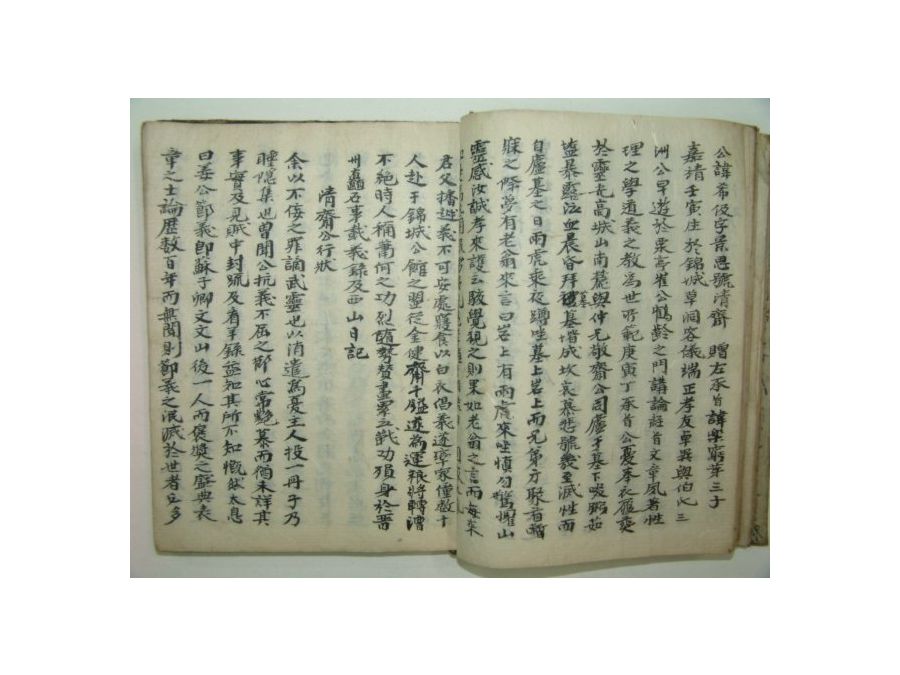 公諱希伋字景思號清齋 贈左承旨諱樂窮第三子
嘉靖壬寅生於錦城草洞容儀端正孝友卓異與伯仁三
洲公早遊於栗亭崔公鶴齡之門講論經旨文章夙著性
理之學道義之教為世所範庚寅丁承旨公憂奉衣履葬
於靈光高城山南麓與仲兄敬齋公同廬于墓下啜粥茹
鹽暴露泣血晨昏拜墓墓堦成坎哀慕悲號幾至滅性而
自廬墓之日兩虎來夜蹲坐墓上岩上而兄弟方聚着睡
寐之際夢有老翁來言曰岩上有兩虎來坐慎勿驚懼山
靈感汝誠孝來護云駭覺視之則果如老翁之言而每案
君父播越義不可安處寢食以白衣倡義遂率家僮數十
人赴于錦城公館之盟從金健齋千鎰遂為運粮將轉漕
不絶時人稱蕭何之功烈 贊畫軍 戰功殞身於晋
州矗石事載義錄及西山日記
清齋公行狀
余以不侫之罪謫武靈也以消遣為憂主人投一冊子乃
睡隱集也曾聞公抗義不屈之節心常艶慕而徜未詳其
事實及見賊中封疏及看羊錄益知其所不知慨然太息
曰姜公節義即蘇子卿文文山後一人而褒奬之盛典表
章之士論歷数百年而無聞則節義之泯滅於世者 多